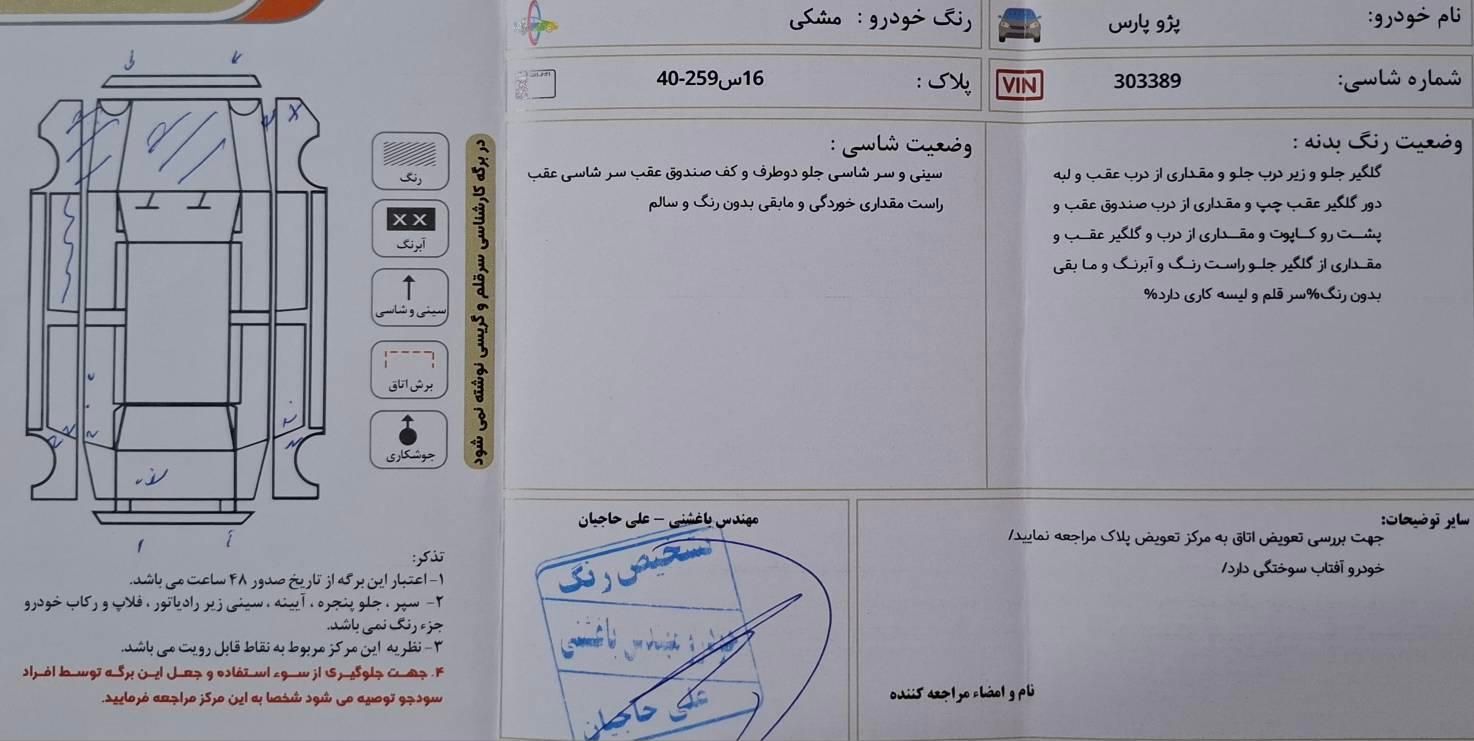 نام خودرو: پژو پارس
رنگ خودرو : مشکی
شماره شاسی: 303389 VIN
پلاک : 16س259-40
وضعیت رنگ بدنه :
گلگیر جلو و زیر درب جلو و مقداری از درب عقب و لبه
دور گلگیر عقب چپ و مقداری از درب صندوق عقب و
پشت رو کاپوت و مقداری از درب و گلگیر عقب و
مقداری از گلگیر جلو راست رنگ و آبرنگ و ما بقی
بدون رنگ%سر قلم و لیسه کاری دارد%
وضعیت شاسی :
سینی و سر شاسی جلو دوطرف و کف صندوق عقب سر شاسی عقب
راست مقداری خوردگی مابقی بدون رنگ و سالم
سایر توضیحات:
جهت بررسی تعویض اتاق به مرکز تعویض پلاک مراجعه نمایید/
خودرو آفتاب سوختگی دارد/
نام و امضاء مراجعه کننده
مهندس باغشنی – علی حاجیان
تشخیص رنگ
علی حاجیان
رنگ
XX
آبرنگ
سینی و شاسی
برش اتاق
جوشکاری
در برگه کارشناسی سرقلم و گریسی نوشته نمی شود
تذکر:
۱- اعتبار این برگه از تاریخ صدور ۴۸ ساعت می باشد.
۲- سپر ، جلو پنجره ، آیینه ، سینی زیر رادیاتور ، قلاپ و رکاب خودرو
جزء رنگ نمی باشد.
۳- نظریه این مرکز مربوط به نقاط قابل رویت می باشد.
۴. جهت جلوگیری از سوء استفاده و جعل این برگه توسط افراد
سودجو توصیه می شود شخصا به این مرکز مراجعه فرمایید.